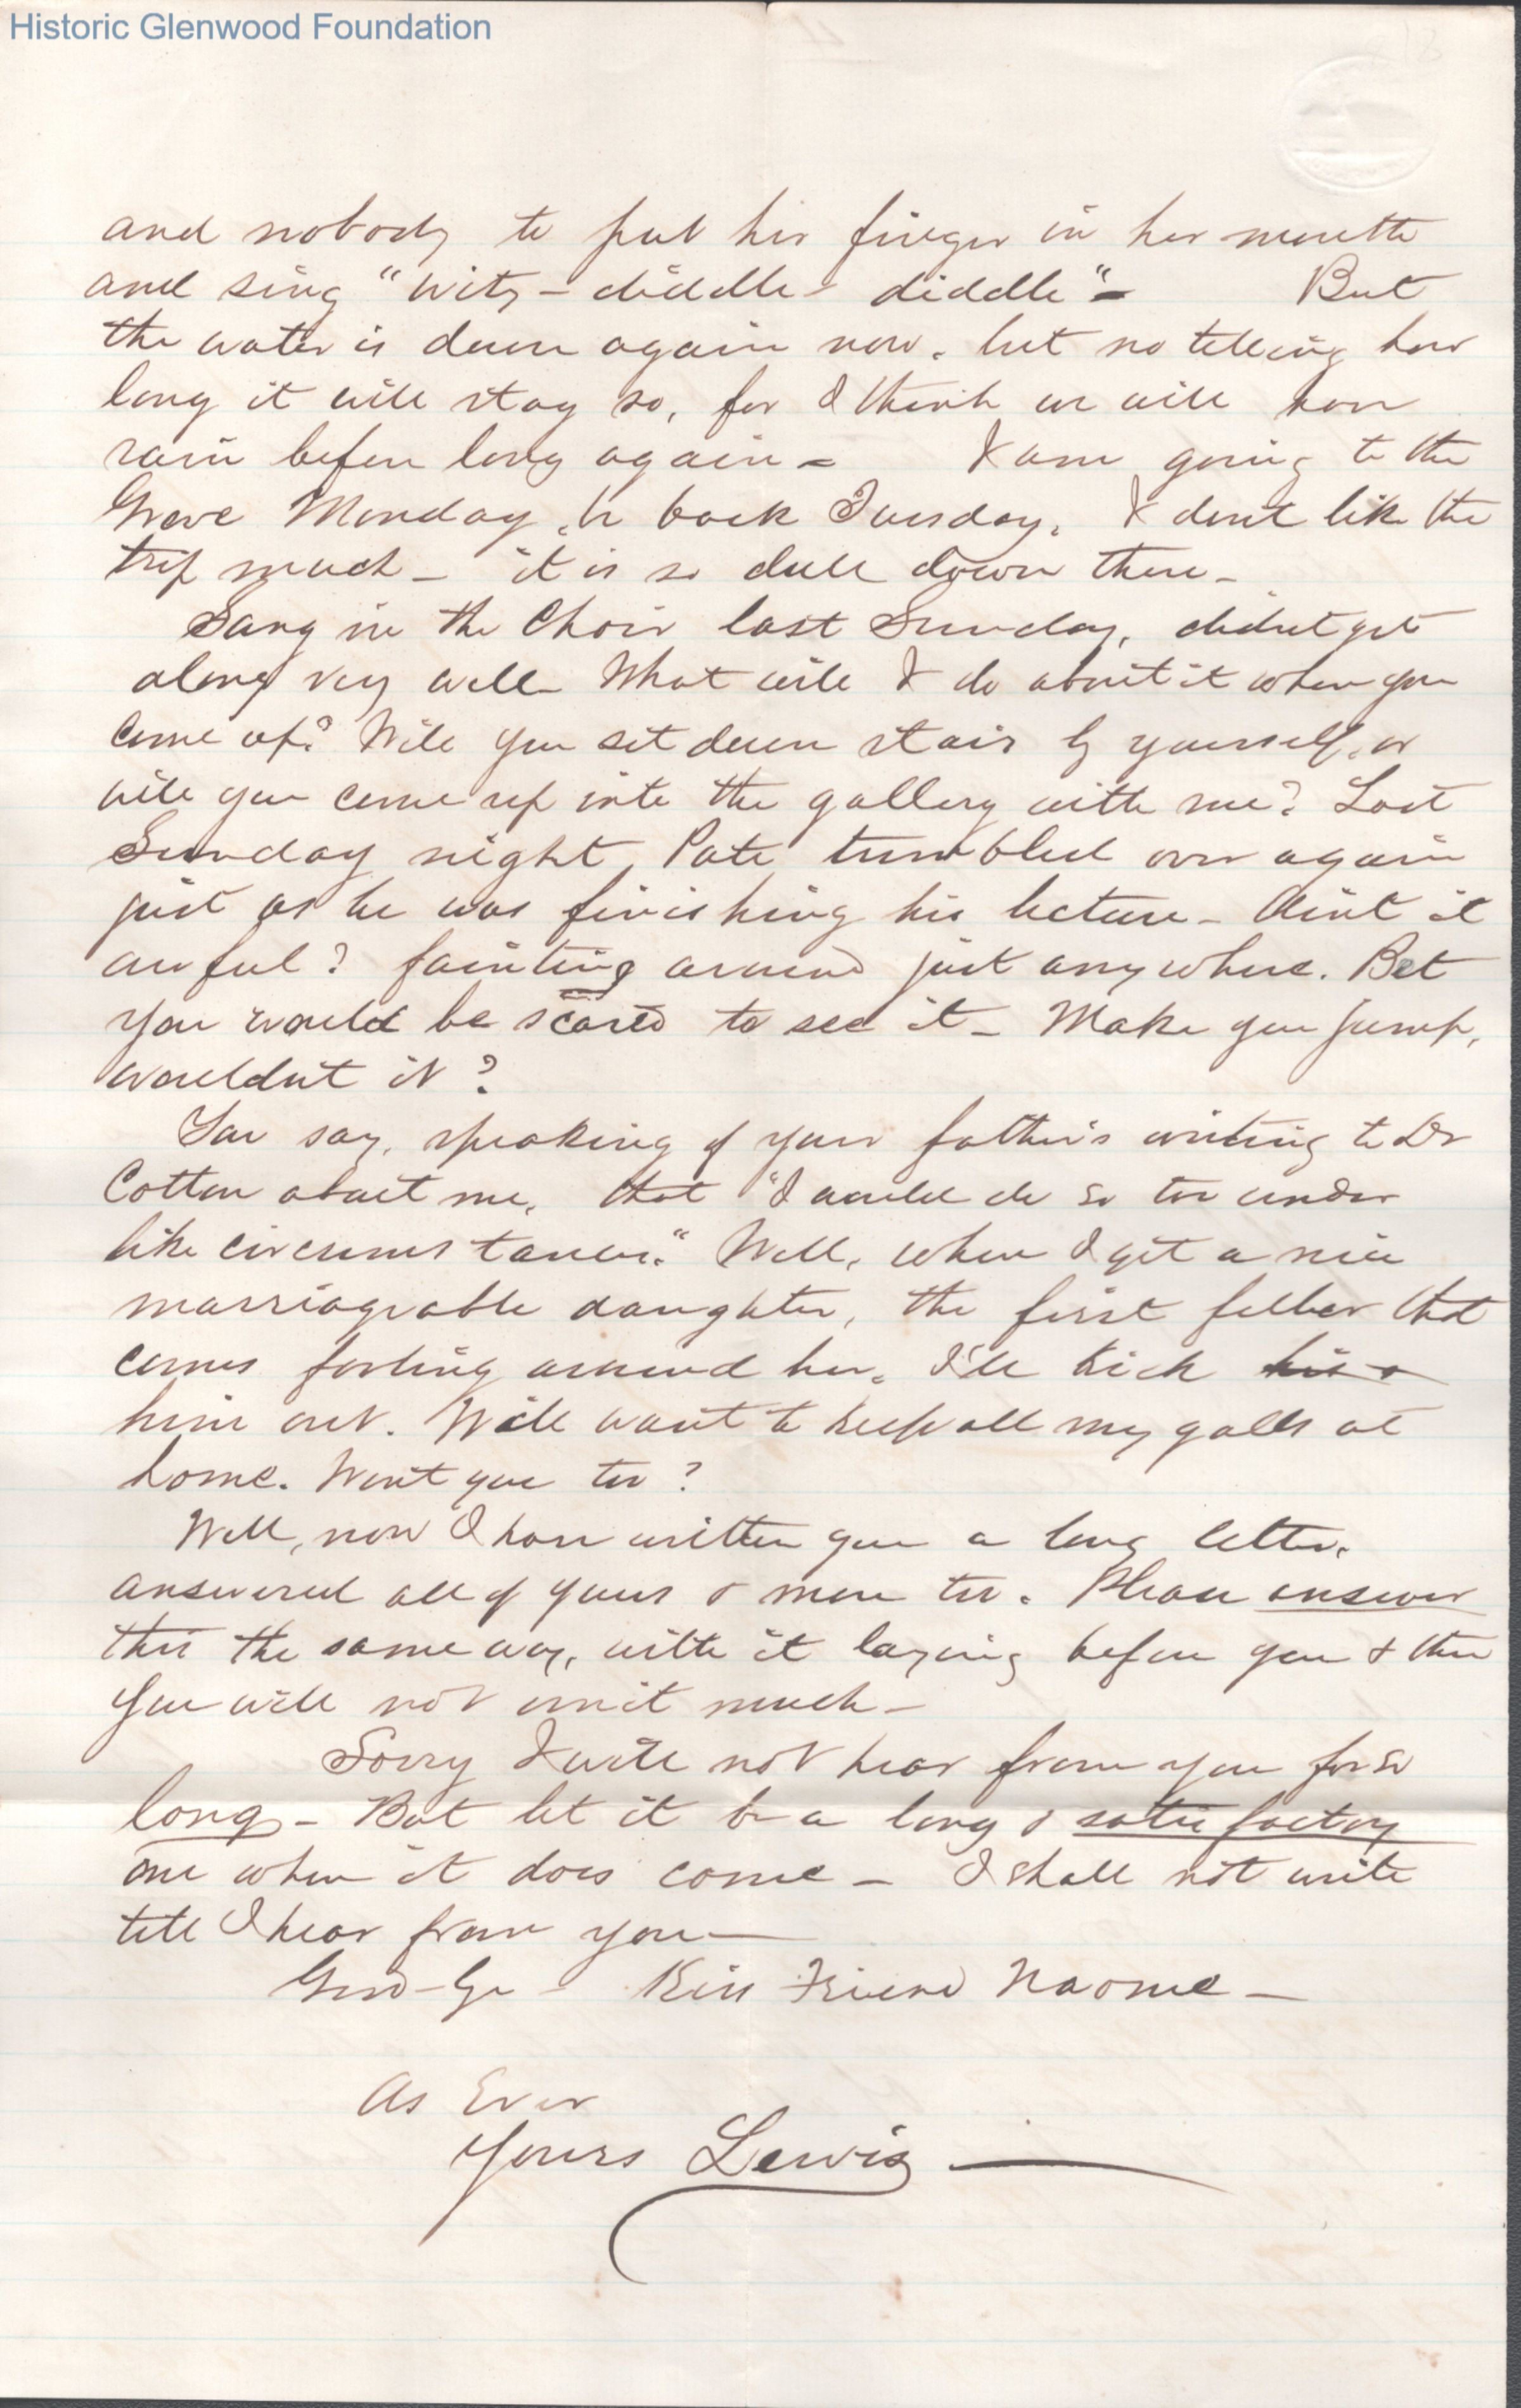 Historic Glenwood Foundation
and nobody to put his finger in her mouth
and sing "witz - diddle - diddle" - But
the water is down again now, but no telling how
long it will stay so, for I think we will have
rain before long again - I am going to the
Grove Monday, be back Tuesday. I dont like the
trip much - it is so dull down there -
Sang in the Choir last Sunday, didnt get
along very well - What will I do about it when you
come up? Will you sit down stair by yourself, or
will you come up into the gallery with me? Last
Sunday night, Pate tumbled over again
just as he was finishing his lecture - Aint it
awful? fainting around just any where. Bet
you would be scared to see it - Make you jump,
wouldnt it?
You say, speaking of your father's writing to Dr
Cotton about me, that "I would do so too under
like circumstances." Well, when I get a nice
marriageable daughter, the first feller that
comes fooling around her, I'll kick his
him out. Will want to keep all my galls at
home. Wont you too?
Well, now I have written you a long letter,
answered all of yours & more too. Please answer
this the same way, with it laying before you & then
you will not omit much -
Sorry I will not hear from you for so
long - But let it be a long & satisfactory
one when it does come - I shall not write
till I hear from you -
Good-by - Kiss Friend Naomie -
As Ever
Yours Lewis